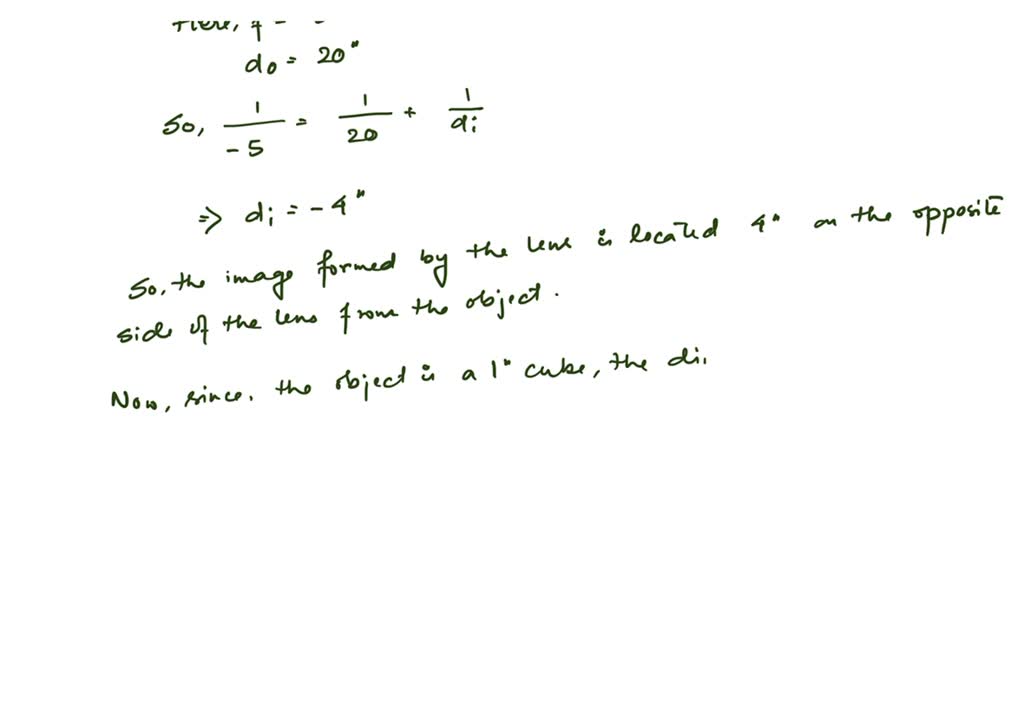 Here, f = -
do = 20"
So, 1/-5 = 1/20 + 1/di
⇒ di = -4"
So, the image formed by the lens is located 4" on the opposite
side of the lens from the object.
Now, since. the object is a 1" cube, the di,